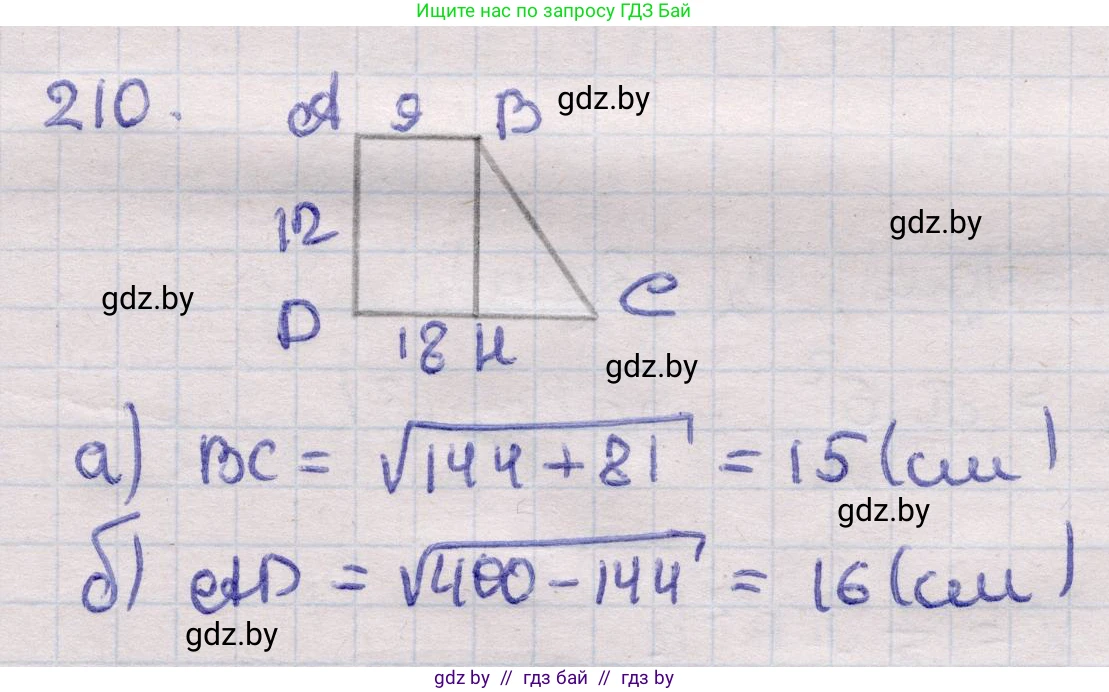 Ищите нас по запросу ГДЗ Бай
210.
A 9 B
gdz.by
12
gdz.by
gdz.by
D 18 H C
gdz.by
а) BC = √144 + 81 = 15 (см)
gdz.by
б) AD = √400 - 144 = 16 (см)
gdz.by
gdz by // гдз бай // гдз by